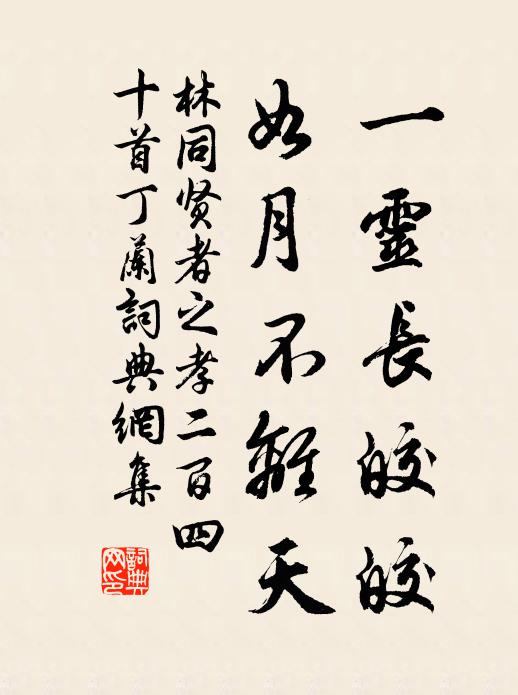 一靈長皎皎
如月不離天
林同贤者之孝二百四
十首丁蘭詞典網集
詞典
网印